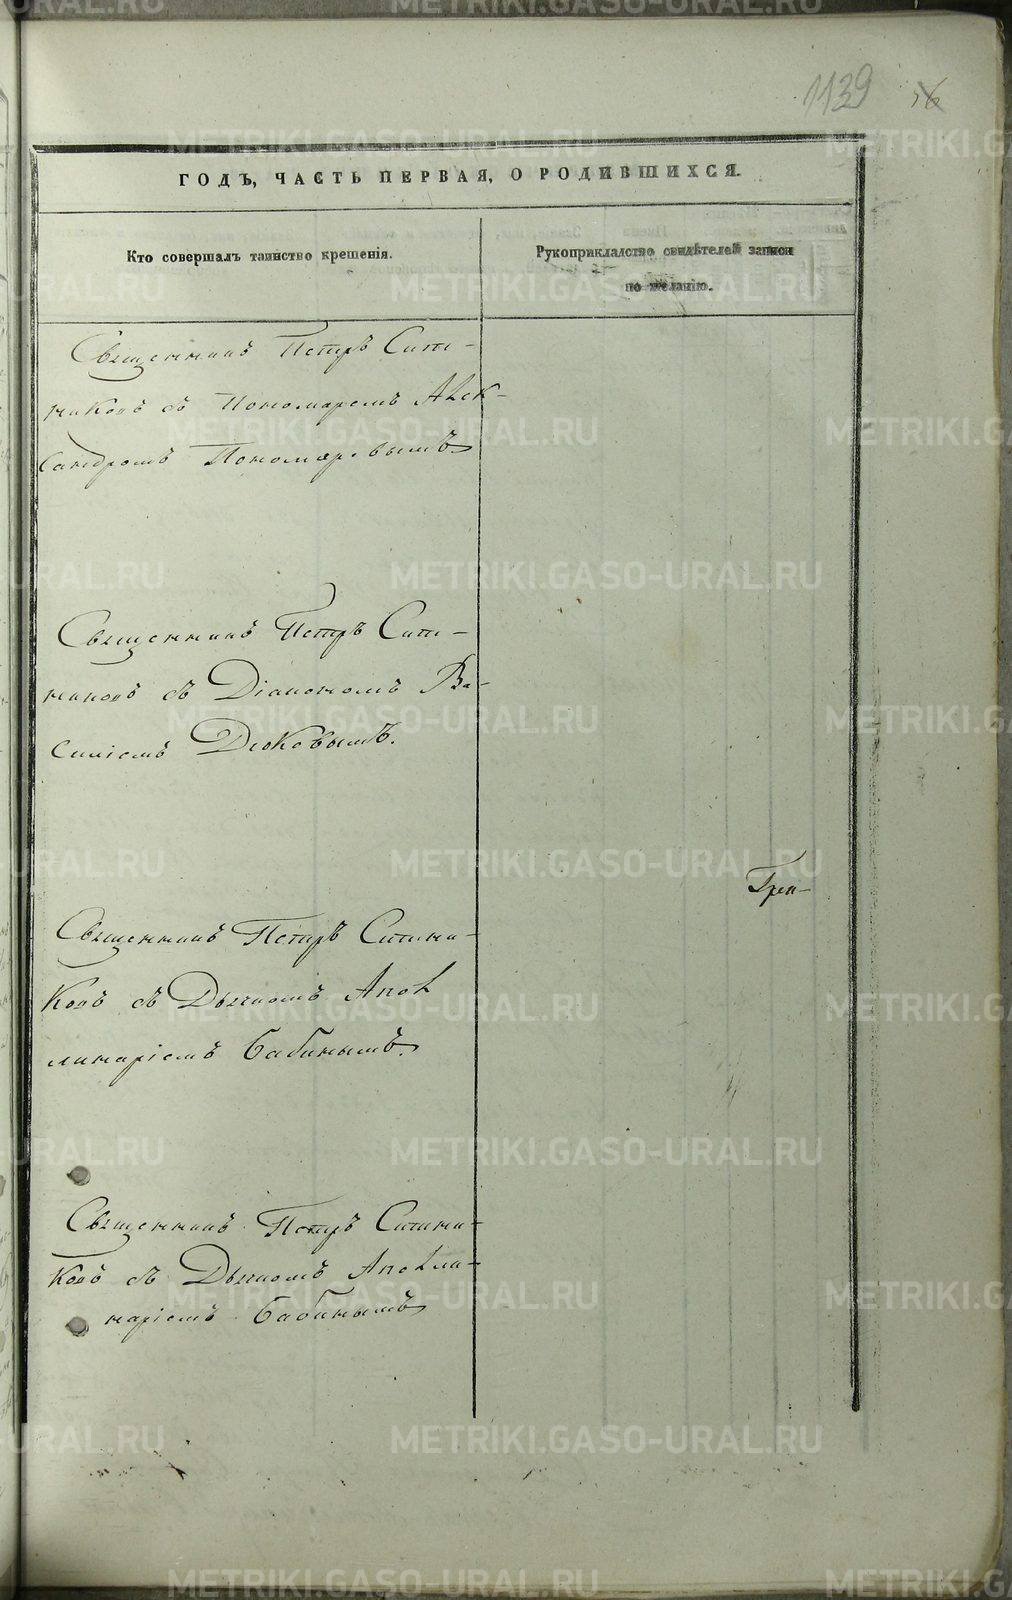 1139 56
ГОДЪ, ЧАСТЬ ПЕРВАЯ, О РОДИВШИХСЯ.
Кто совершалъ таинство крещенія.
Рукоприкладство свидѣтелей записи
по желанію.
Священникъ Петръ Сит-
никовъ съ Пономаремъ Алек-
сандромъ Пономаревымъ
Священникъ Петръ Сит-
никовъ съ Діакономъ Ва-
силіемъ Дюковымъ.
Трен-
Священникъ Петръ Ситни-
ковъ съ Дьячкомъ Апол
линаріемъ Бабинымъ.
Священникъ Петръ Ситни-
ковъ съ Дьячкомъ Аполли-
наріемъ Бабинымъ
METRIKI.GASO-URAL.RU